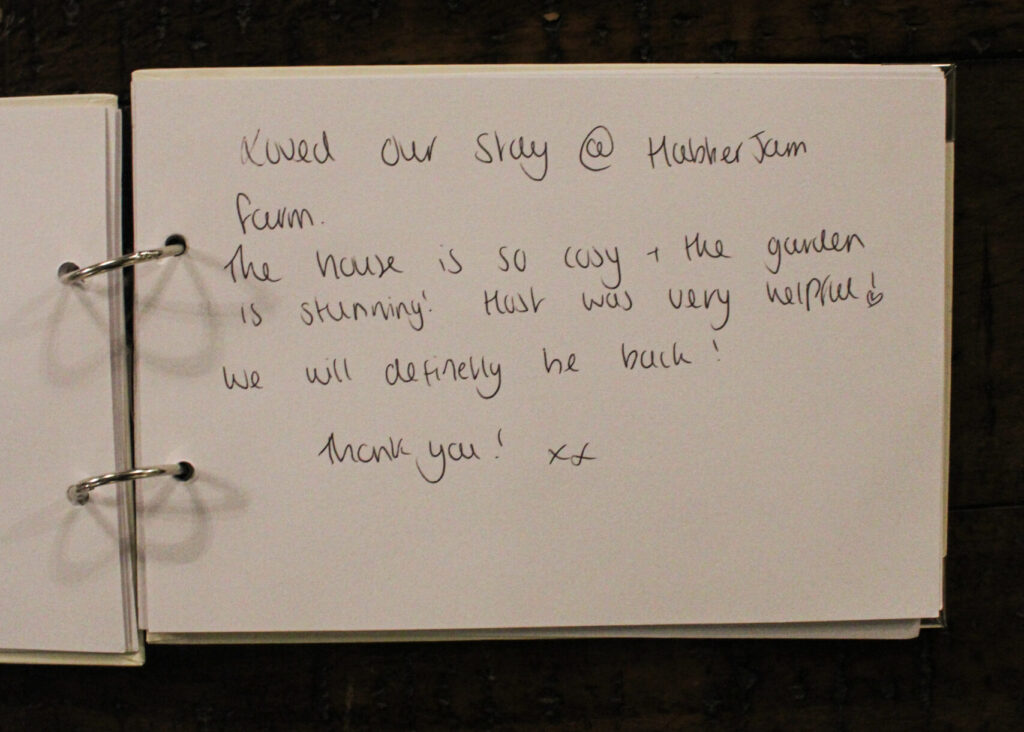 Loved our stay @ HabberJam
farm.
The house is so cosy + the garden
is stunning! Host was very helpful!
We will definetly be back!
Thank you! xx